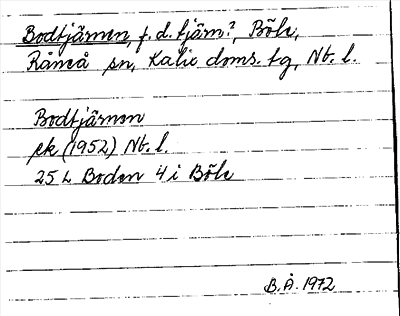 Bodtjärnen, f.d. tjärn?, Böle,
Råneå sn, Kalix doms. tg, Nb. l.
Bodtjärnen
ek (1952) Nb. l.
25 L Boden 4 i Böle
B.Å. 1972